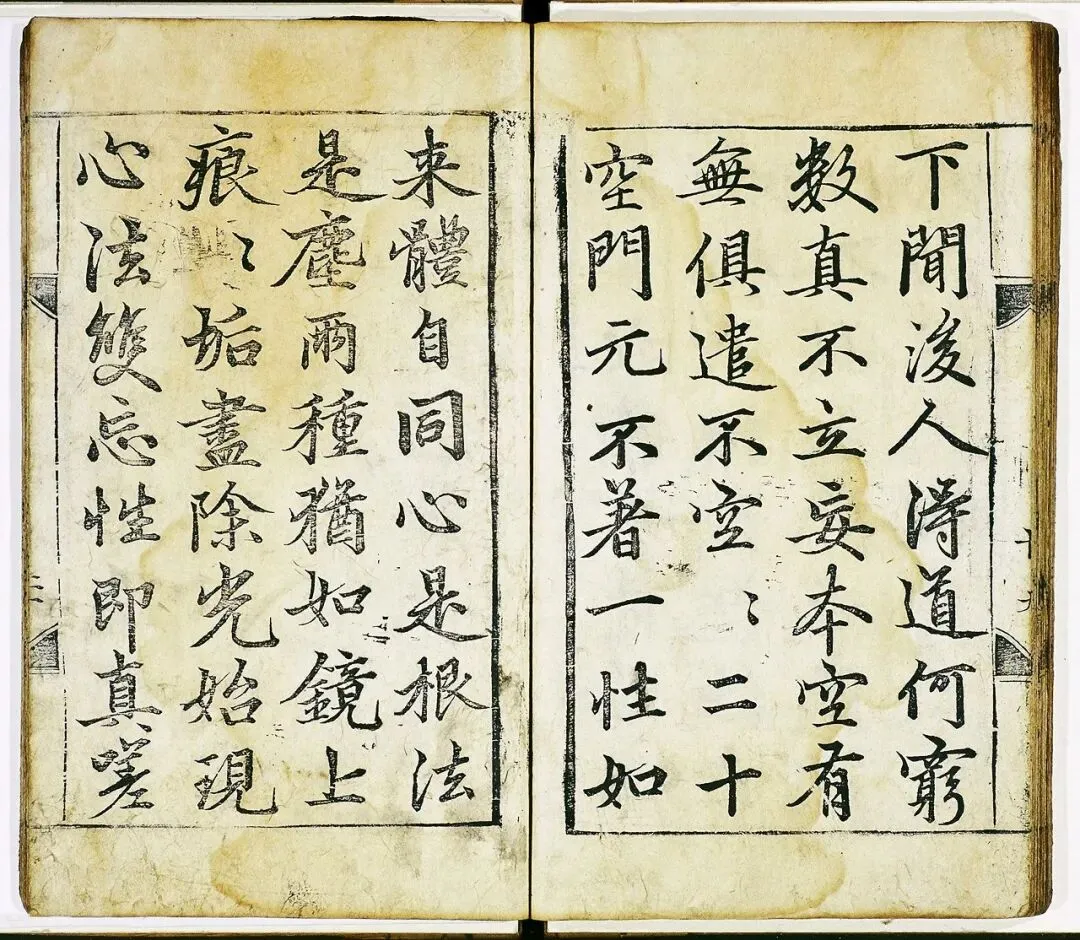 下聞後人得道何窮
数真不立妄本空有
無俱遣不空〻二十
空門元不著一性如
来體自同心是根法
是塵兩種猶如鏡上
痕〻垢盡除光始現
心法雙忘性即真嗟